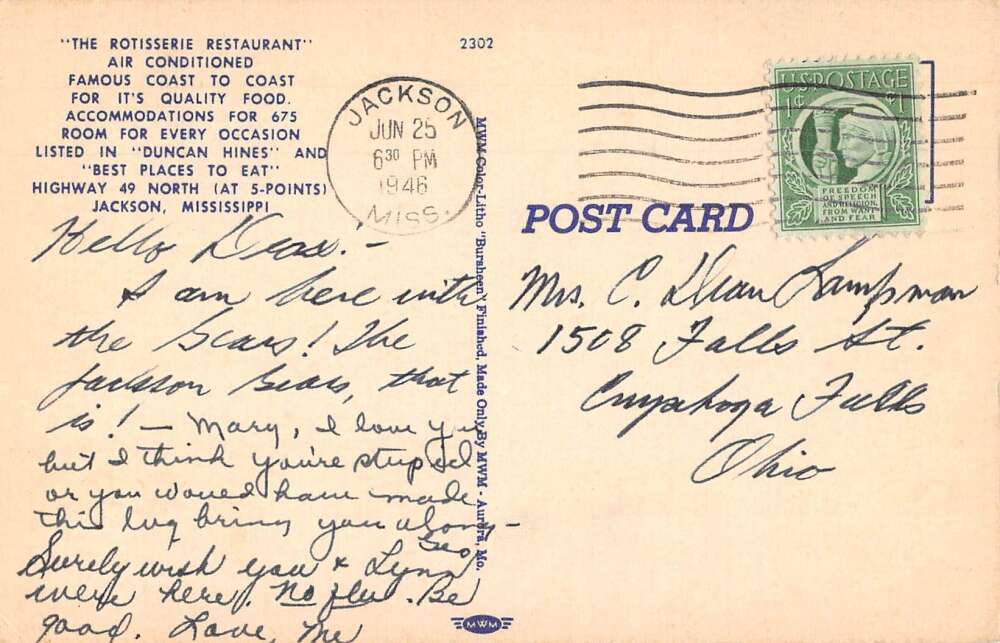 "THE ROTISSERIE RESTAURANT"
AIR CONDITIONED
FAMOUS COAST TO COAST
FOR IT'S QUALITY FOOD.
ACCOMMODATIONS FOR 675
ROOM FOR EVERY OCCASION
LISTED IN "DUNCAN HINES" AND
"BEST PLACES TO EAT"
HIGHWAY 49 NORTH (AT 5-POINTS)
JACKSON, MISSISSIPPI
Hello Dear! -
I am here with
the Sears! The
Jackson Sears, that
is! - Mary, I love you
but I think you're stupid
or you would have made
this lug bring you along -
Geo
Surely wish you & Lynn
were here. No flu. Be
good. Love, Me
2302
MWM Color-Litho "Bursheen" Finished. Made Only By MWM - Aurora, Mo.
MWM
JACKSON
JUN 25
6 30 PM
1946
MISS.
U.S. POSTAGE
1¢ ¢1
FREEDOM
OF SPEECH
AND RELIGION,
FROM WANT
AND FEAR
POST CARD
Mrs. C. Dean Lampman
1508 Falls St.
Cuyahoga Falls
Ohio